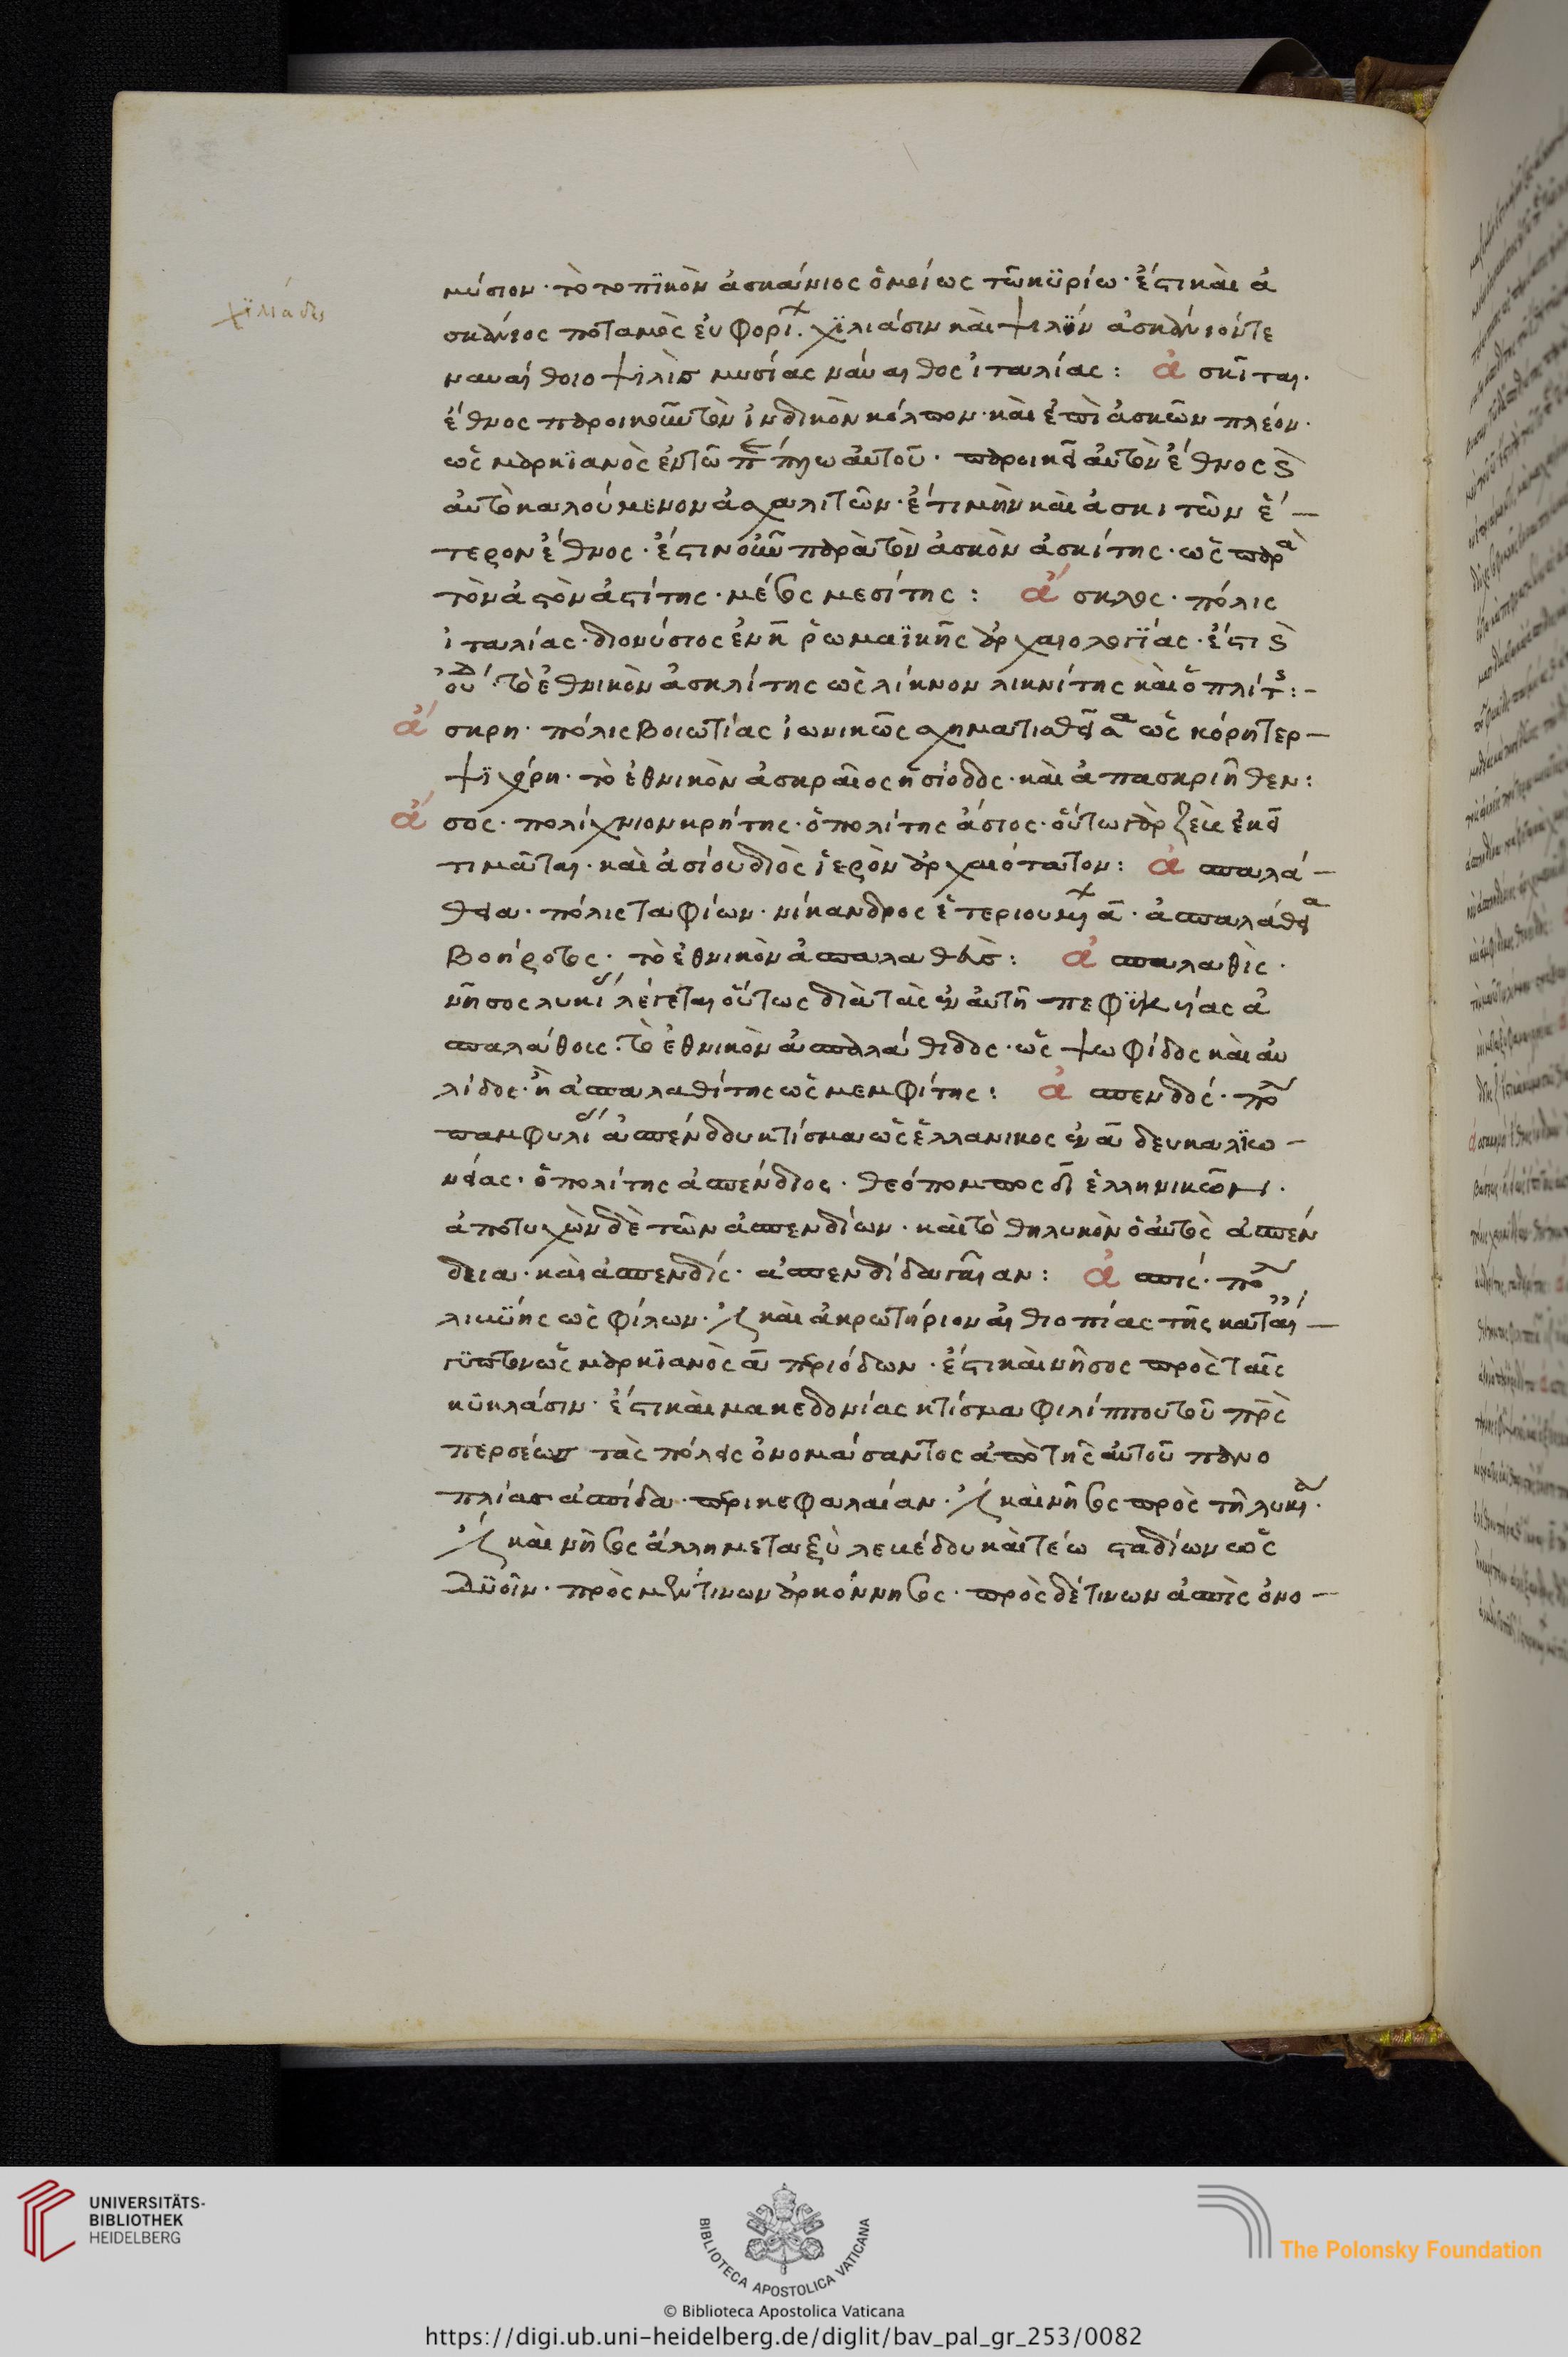 χϊλιάδες
μύσιον· τὸ τοπϊκὸν ἀσκάνιος ὁμοίως τῶ κϋρίω· ἔστι καὶ ἀ
σκάνιος ποταμὸς εὐφορί χ. χϊλιάσιν καὶ
ναυαίθοιο μυσίας ναύαιθος ἰταλίας: ἀσκῖται·
ἔθνος παροικοῦν τὸν ἰνδικὸν κόλπον· καὶ ἐπὶ ἀσκῶν πλέον·
ὡς μαρκϊανὸς ἐν τῶ αὐτοῦ· παροικεῖ αὐτὸν ἔθνος
αὐτὸ καλούμενον ἀχαλιτῶν· ἔτι μὴν καὶ ἀσκιτῶν ἕ—
τερον ἔθνος· ἔστιν οὖν παρὰ τὸν ἀσκὸν ἀσκίτης· ὡς παρα
τὸν ἀστὸν ἀστίτης· μέσος μεσίτης: ἄσκλος· πόλις
ἰταλίας· διονύσιος ἐν ῥωμαϊκῆς ἀρχαιολογϊας· ἔστι
τὸ ἐθνικὸν ἀσκλίτης ὡς λίκνον λικνίτης καὶ ὁπλίτ:-
ἄσκρη· πόλις βοιωτίας ἰωνικῶς σχηματισθεῖσα ὡς κόρη τερ—
ψϊχόρη· τὸ ἐθνικὸν ἀσκραῖος ἡσίοδος· καὶ ἀπ ασκριῆθεν:
ἄσος· πολίχνιον κρήτης· ὁ πολίτης ἄσιος· οὕτω γὰρ ζεὺς ἐκεῖ
τιμᾶται· καὶ ἀσίου διὸς ἱερὸν ἀρχαιότατον: ἀσπαλά—
θεια· πόλις ταφίων· νίκανδρος ἑτεριουμ α· ἀσπαλάθεια
βοήροτος· τὸ ἐθνικὸν ἀσπαλαθεὺς: ἀσπαλαθὶς·
νῆσος λυκί λέγεται οὕτως διὰ τὰς ἐν αὐτῆ πεφϋκυίας ἀ
σπαλάθους· τὸ ἐθνικὸν ἀσπαλάθιδος· ὡς ψωφίδος καὶ αὐ
λίδος· ἢ ἀσπαλαθίτης ὡς μεμφίτης: ἀσπενδός· πο
παμφυλί ἀσπένδου κτίσμα ὡς ἑλλανικος ἐν α δευκαλϊω—
νείας· ὁ πολίτης ἀσπένδιος· θεόπομπος δ ἑλληνικῶν ι·
ἀποτυχὼν δὲ τῶν ἀσπενδίων· καὶ τὸ θηλυκὸν ὁ αὐτὸς ἀσπέν
δεια· καὶ ἀσπενδίς· ἀσπενδίδα γαῖαν: ἀσπίς· πο
λιβύης ὡς φίλων· ἔστι καὶ ἀκρωτήριον αἰθιοπίας τῆς κατ αἴ—
γϋπτον ὡς μαρκϊανὸς α περιόδων· ἔστι καὶ νῆσος πρὸς ταῖς
κϋκλάσιν· ἔστι καὶ μακεδονίας κτίσμα φιλίππου τοῦ πρς
περσέως τὰς πόλεις ὀνομάσαντος ἀπὸ τῆς αὐτοῦ πανο
πλίας ἀσπίδα· περικεφαλαίαν· ἔστι καὶ νῆσος πρὸς τῆ λυκί·
ἔστι καὶ νῆσος ἄλλη μεταξὺ λεβέδου καὶ τέω σταδίων ὡς
δϋοῖν· πρὸς μέν τινων ἀρκόννησος· πρὸς δέ τινων ἀσπὶς ὀνο—
UNIVERSITÄTS-
BIBLIOTHEK
HEIDELBERG
BIBLIOTECA APOSTOLICA VATICANA
The Polonsky Foundation
© Biblioteca Apostolica Vaticana
https://digi.ub.uni-heidelberg.de/diglit/bav_pal_gr_253/0082